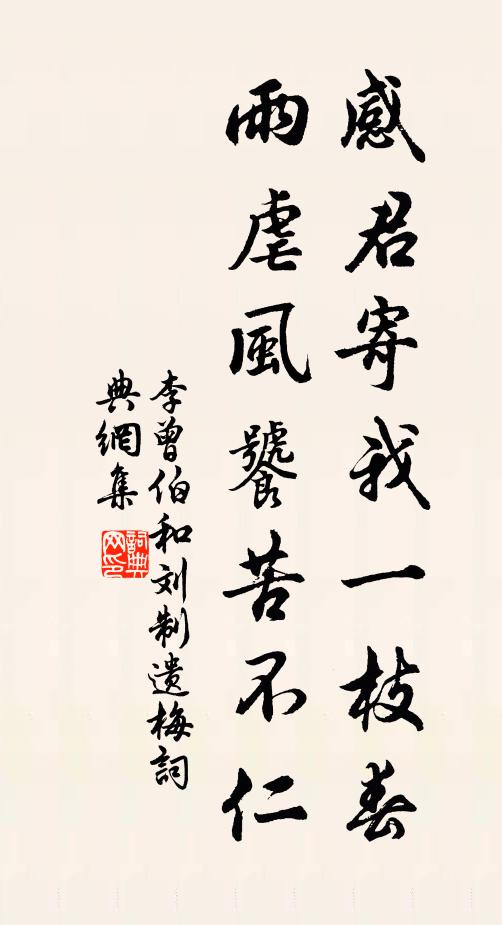 感君寄我一枝春
雨虐風饕苦不仁
李曾伯和刘制遗梅詞
典網集
詞典
网印